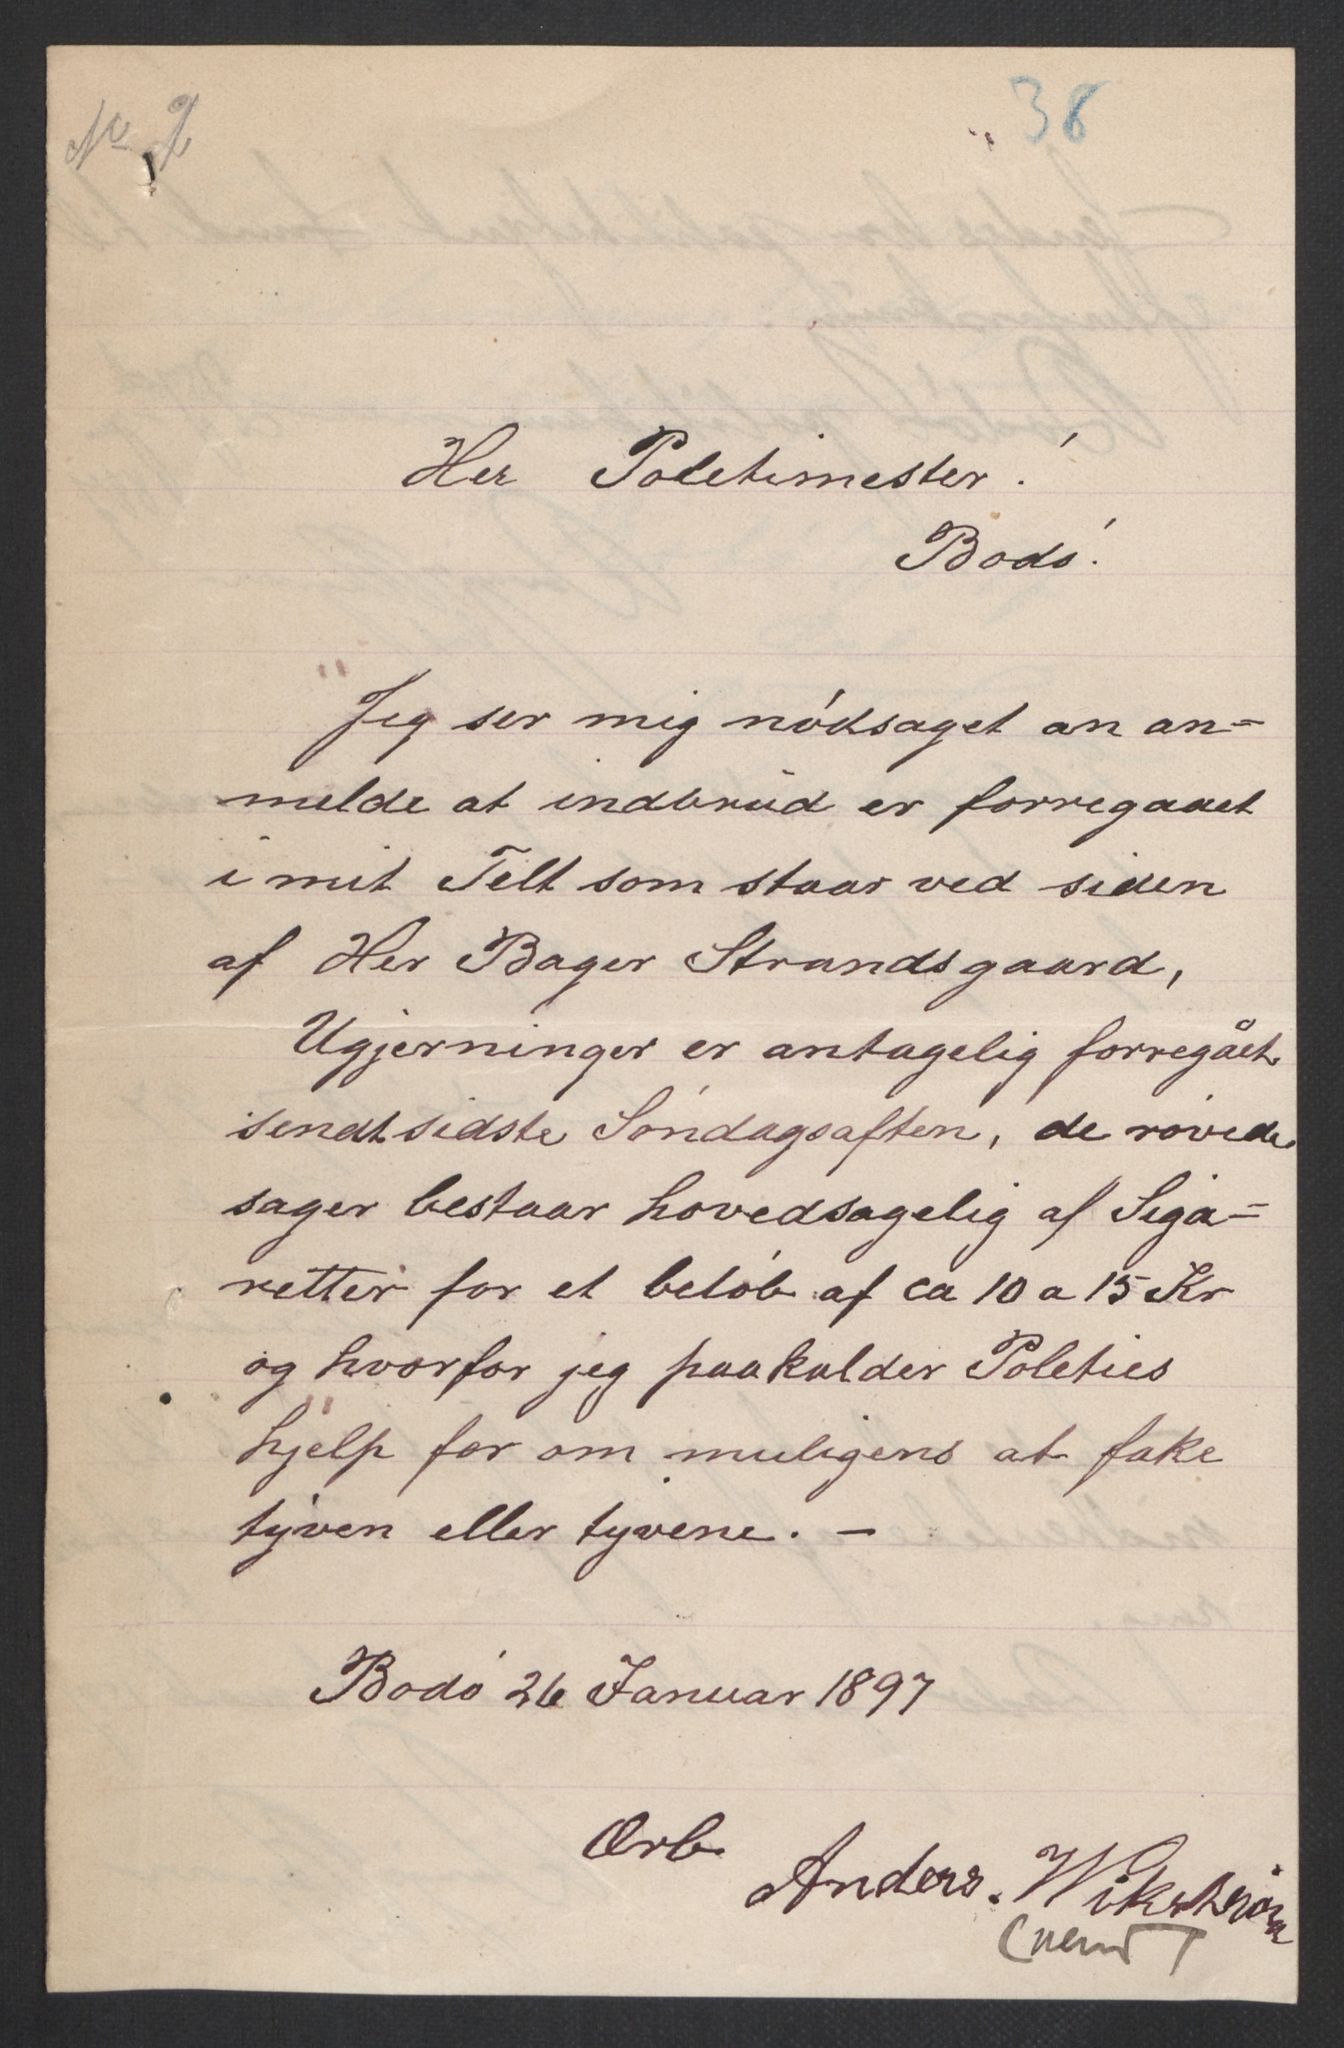 No 2
38
Her Poletimester!
Bodó!
Jeg ser mig nódsaget an an=
melde at indbrud er forregaaet
i mit Telt som staar ved siden
af Her Bager Strandsgaard,
Ugjerninger er antagelig forregået
sendt sidste Sóndagsaften, de róvede
sager bestaar hovedsagelig af Siga=
retter for et belób af ca 10 a 15 Kr
og hvorfor jeg paakalder Poleties
hjelp for om muligens at fake
tyven eller tyvene. —
Bodó 26 Januar 1897
Ærb
Anders. Wikström
(vend)